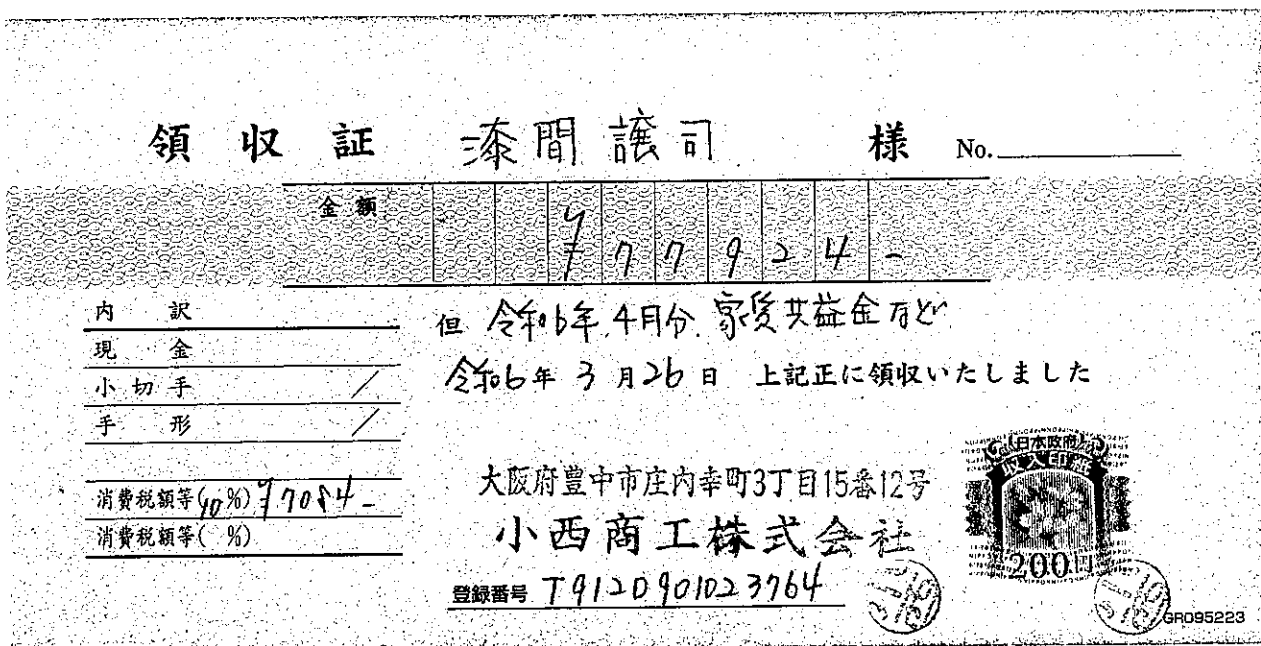 領収証 漆間譲司 様 No.
金額 ¥77924-
内訳
現金
小切手 /
手形 /
消費税額等(10%) ¥7084-
消費税額等( %)
但 令和6年4月分. 家賃共益金など
令和6年3月26日 上記正に領収いたしました
大阪府豊中市庄内幸町3丁目15番12号
小西商工株式会社
登録番号 T9120901023764
日本政府
収入印紙
200円
GR095223